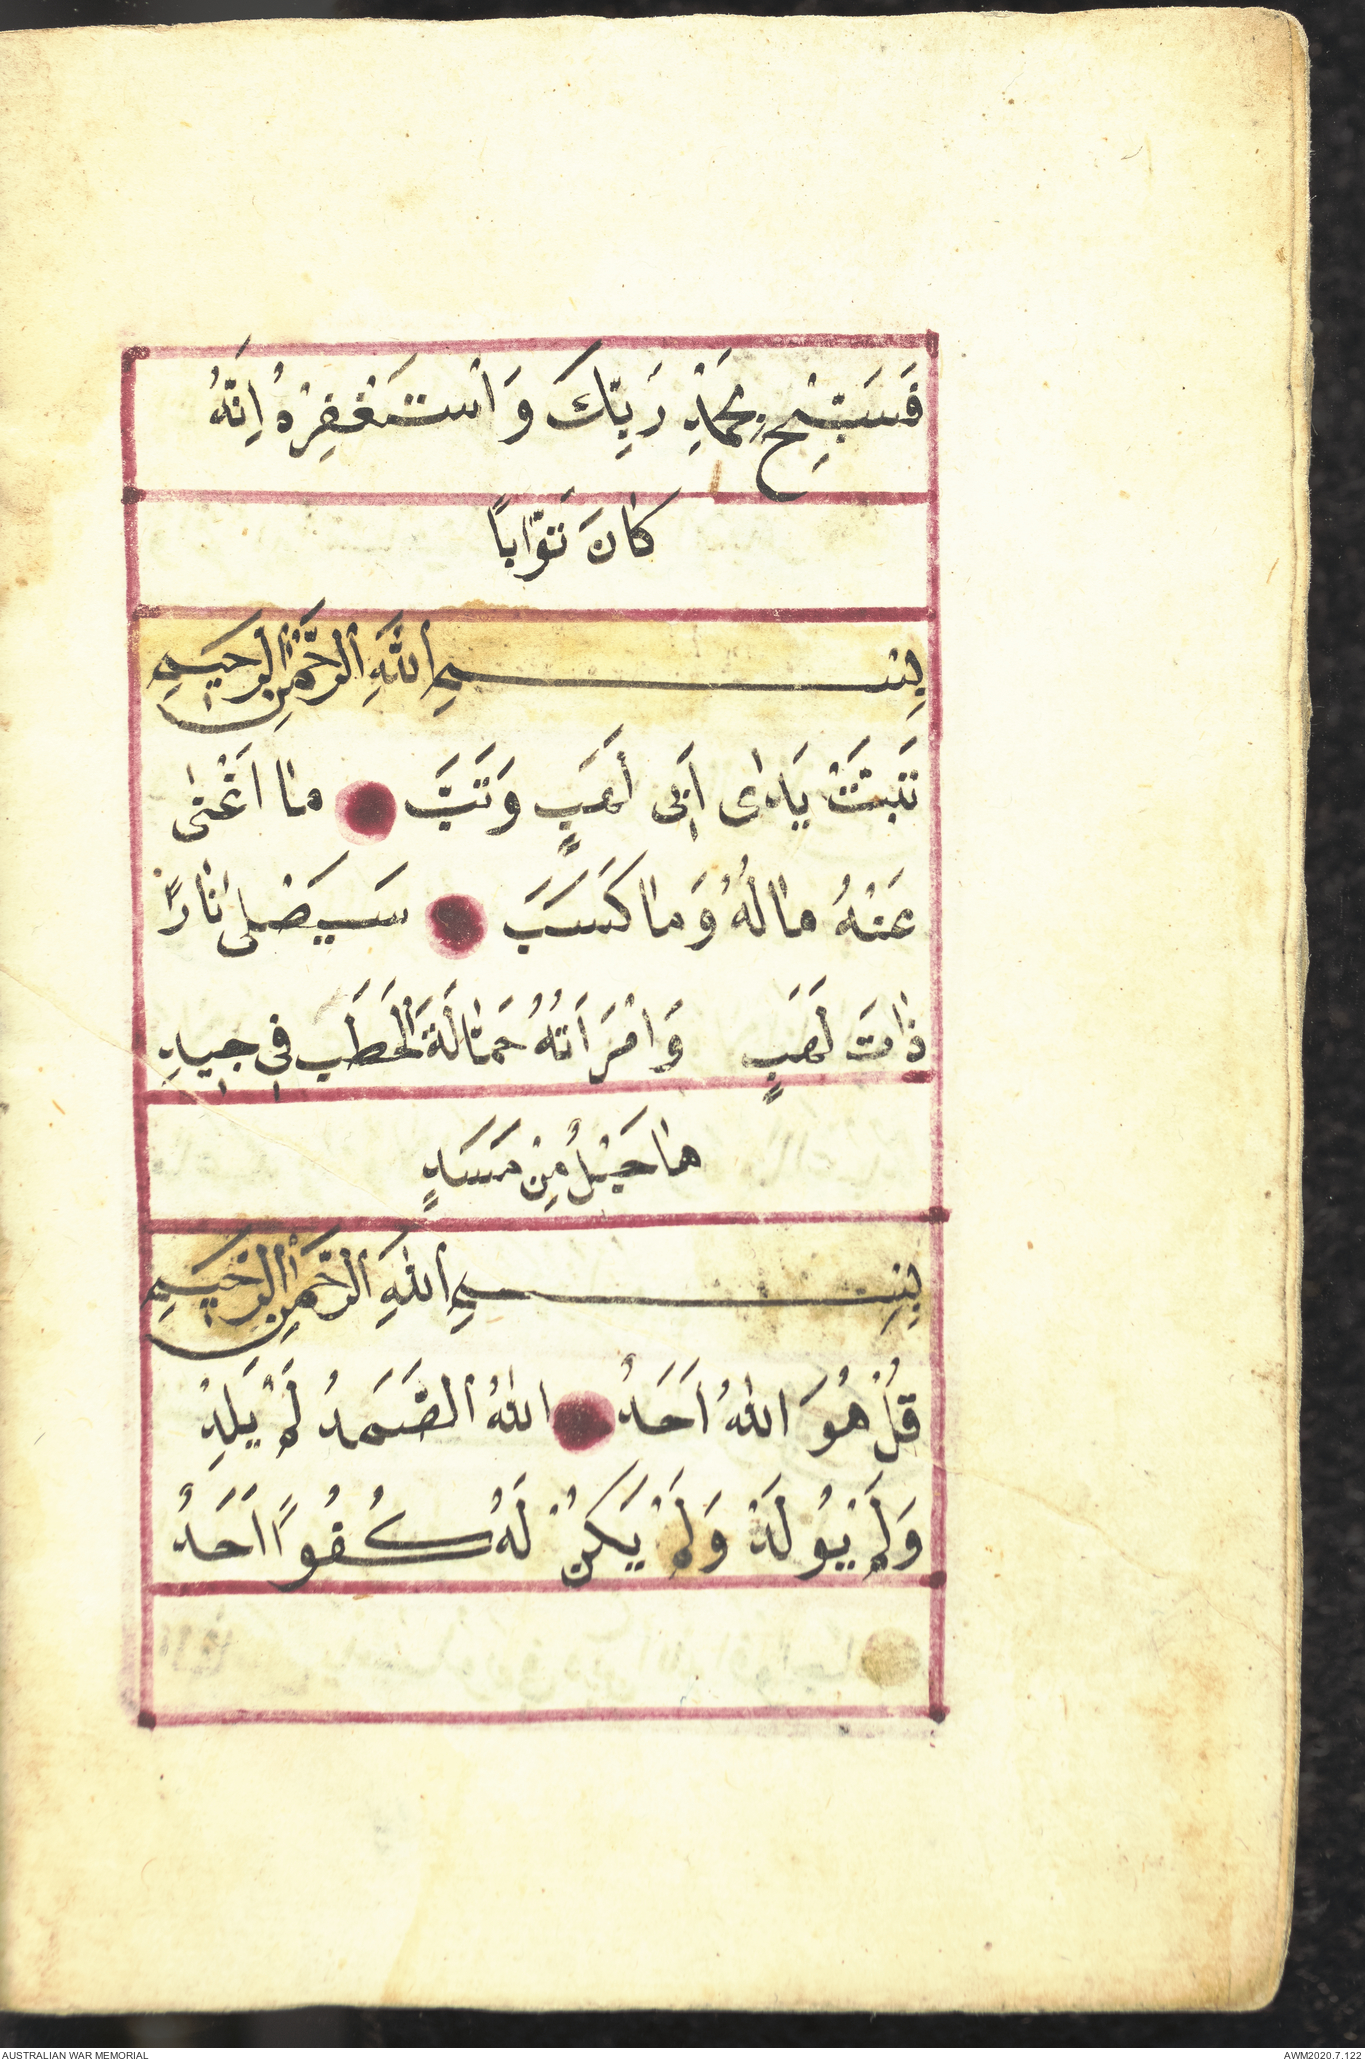 فَسَبِّحْ بِحَمْدِ رَبِّكَ وَاسْتَغْفِرْهُ اِنَّهُ
كَانَ تَوَّاباً
بِسْمِ اللّٰهِ الرَّحْمٰنِ الرَّحِيمِ
تَبَّتْ يَدٰى اَبِى لَهَبٍ وَتَبَّ مٰا اَغْنٰى
عَنْهُ مٰالُهُ وَمٰا كَسَبَ سَيَصْلٰى نٰارًا
ذٰاتَ لَهَبٍ وَامْرَاَتُهُ حَمّٰالَةَ الْحَطَبِ فِى جِيدِ
هٰا حَبْلٌ مِنْ مَسَدٍ
بِسْمِ اللّٰهِ الرَّحْمٰنِ الرَّحِيمِ
قُلْ هُوَ اللّٰهُ اَحَدٌ اللّٰهُ الصَّمَدُ لَمْ يَلِدْ
وَلَمْ يُولَدْ وَلَمْ يَكُنْ لَهُ كُفُواً اَحَدٌ
AUSTRALIAN WAR MEMORIAL
AWM2020.7.122